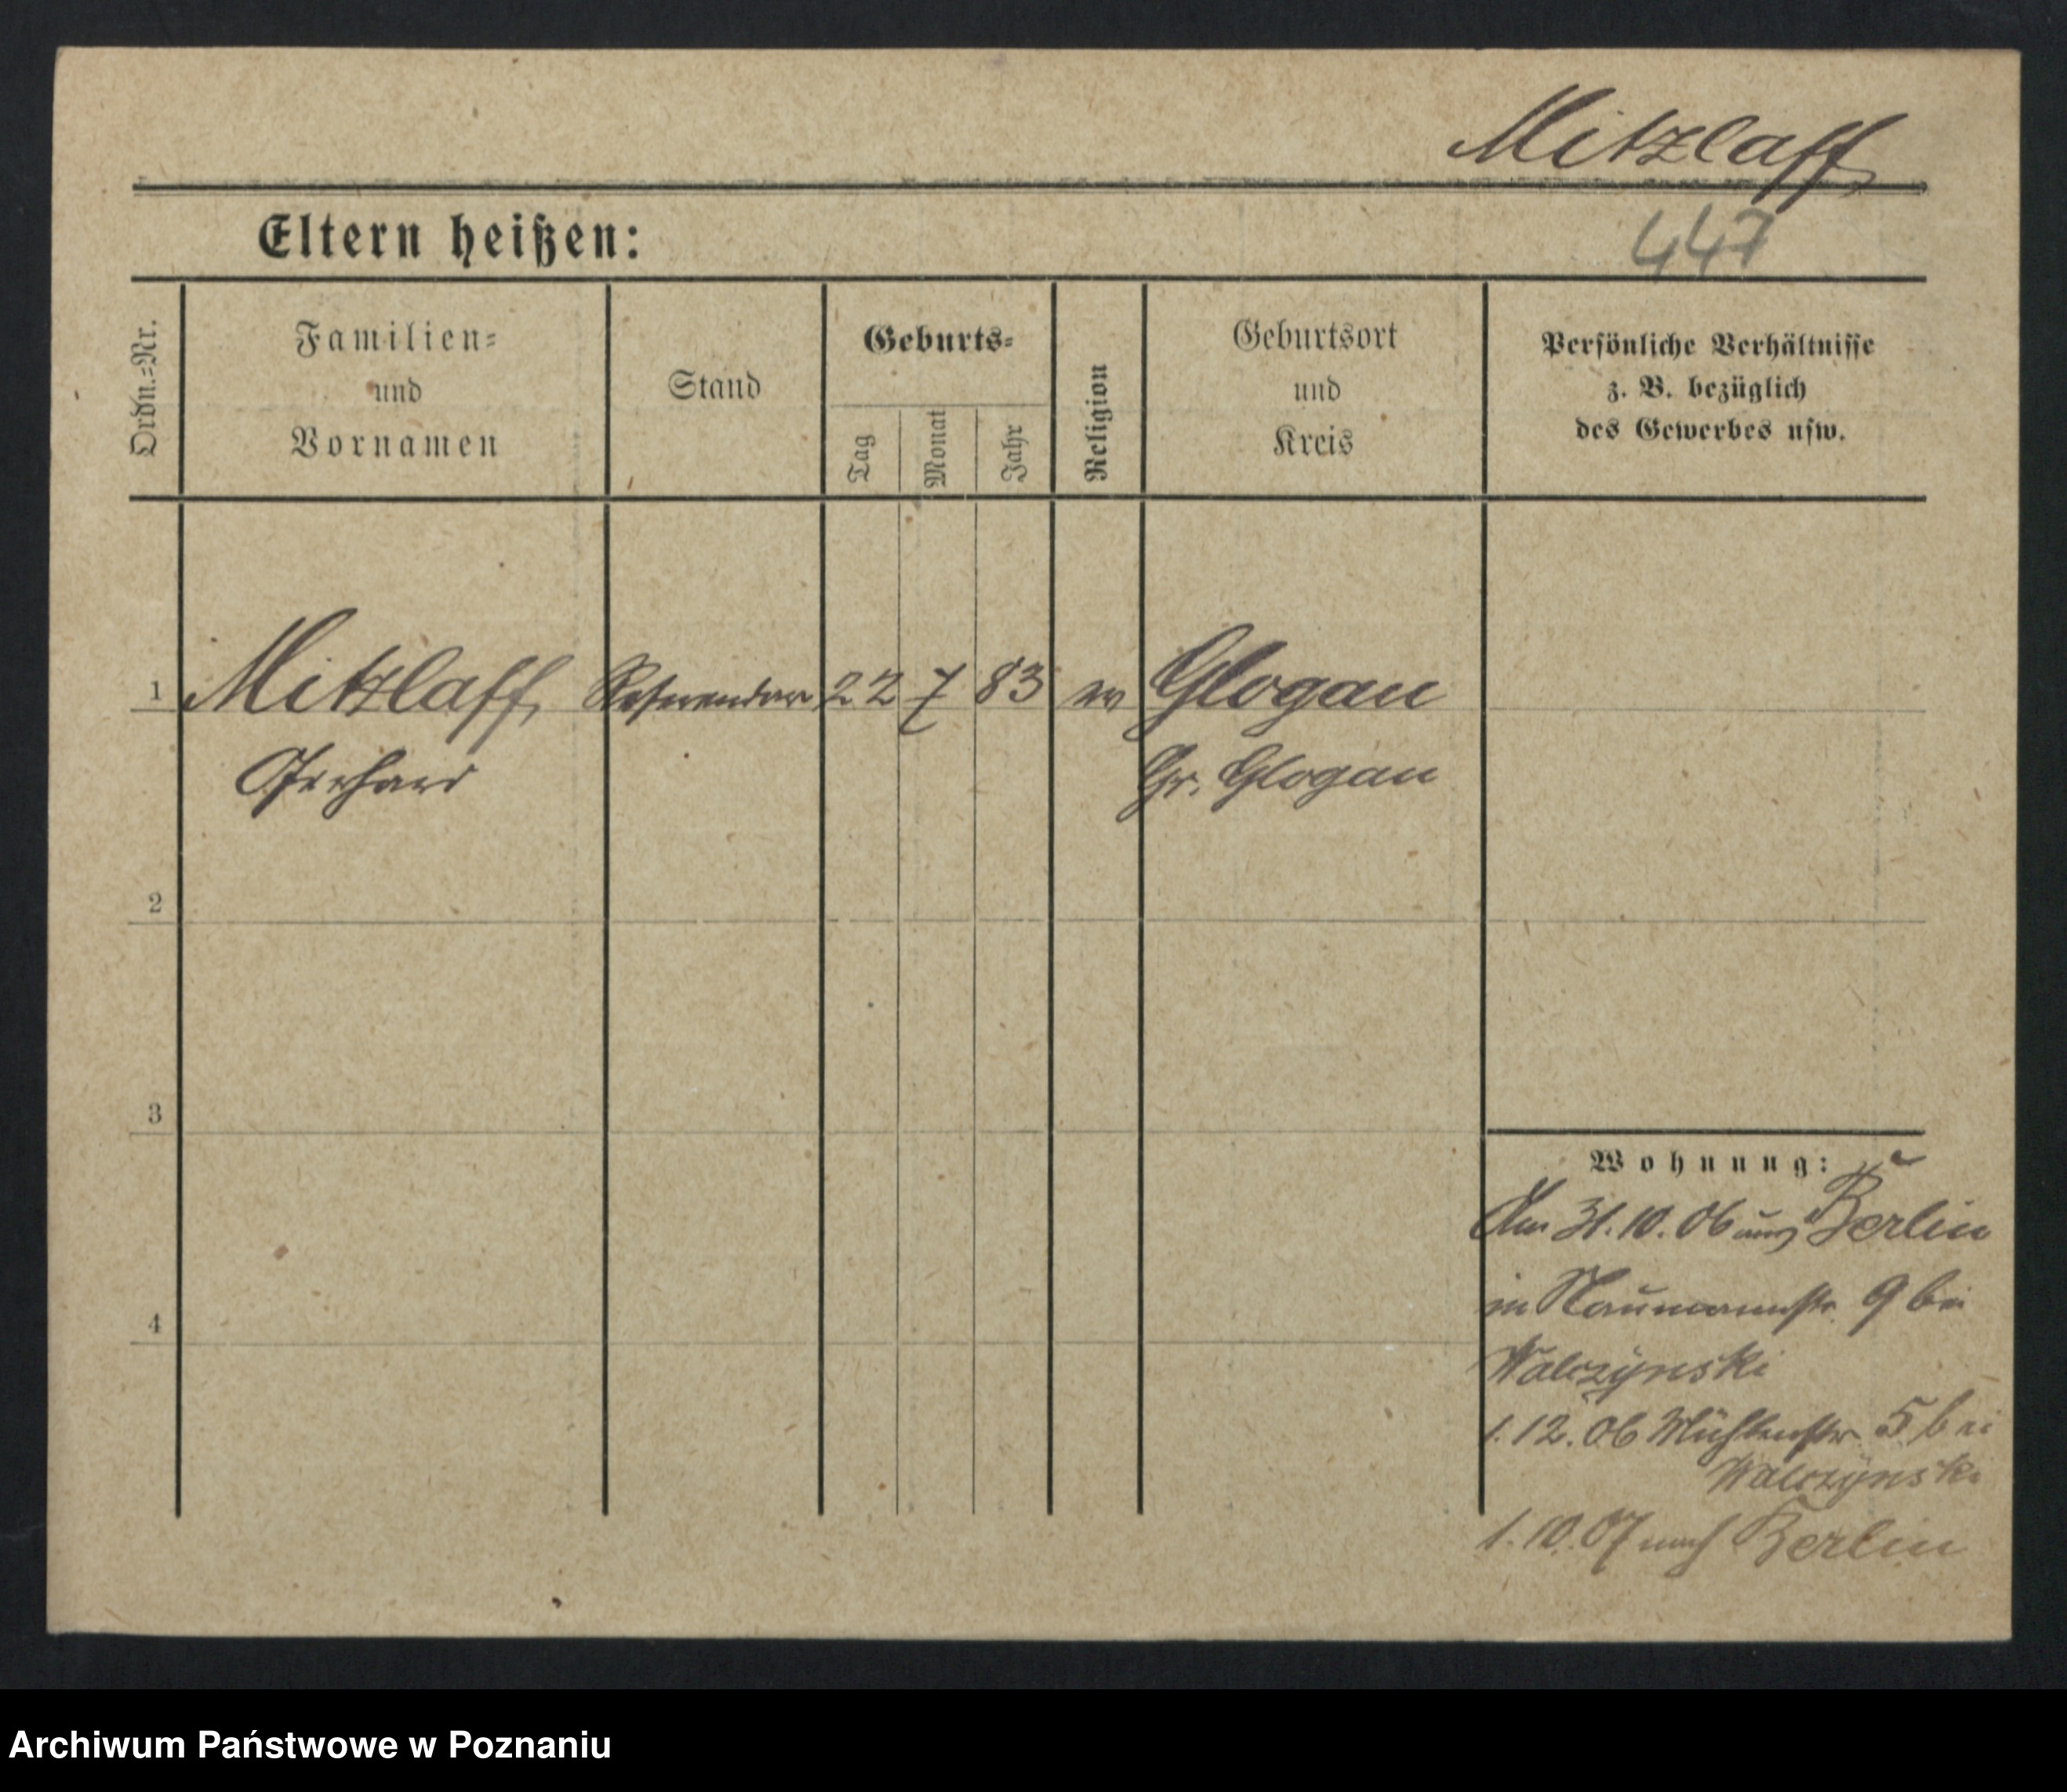 Mitzlaff
447
Eltern heißen:
Ordn.=Nr.
Familien=
und
Vornamen
Stand
Geburts=
Tag
Monat
Jahr
Religion
Geburtsort
und
Kreis
Persönliche Verhältnisse
z. B. bezüglich
des Gewerbes usw.
1 Mitzlaff Referendar 22 7 83 ev Glogau
Gerhard Gr. Glogau
2
3
4
Wohnung:
Am 31.10.06 aus Berlin
in Naumannstr. 9 bei
Walczynski
1.12.06 Mühlenstr. 5 bei
Walczynski
1.10.07 nach Berlin
Archiwum Państwowe w Poznaniu